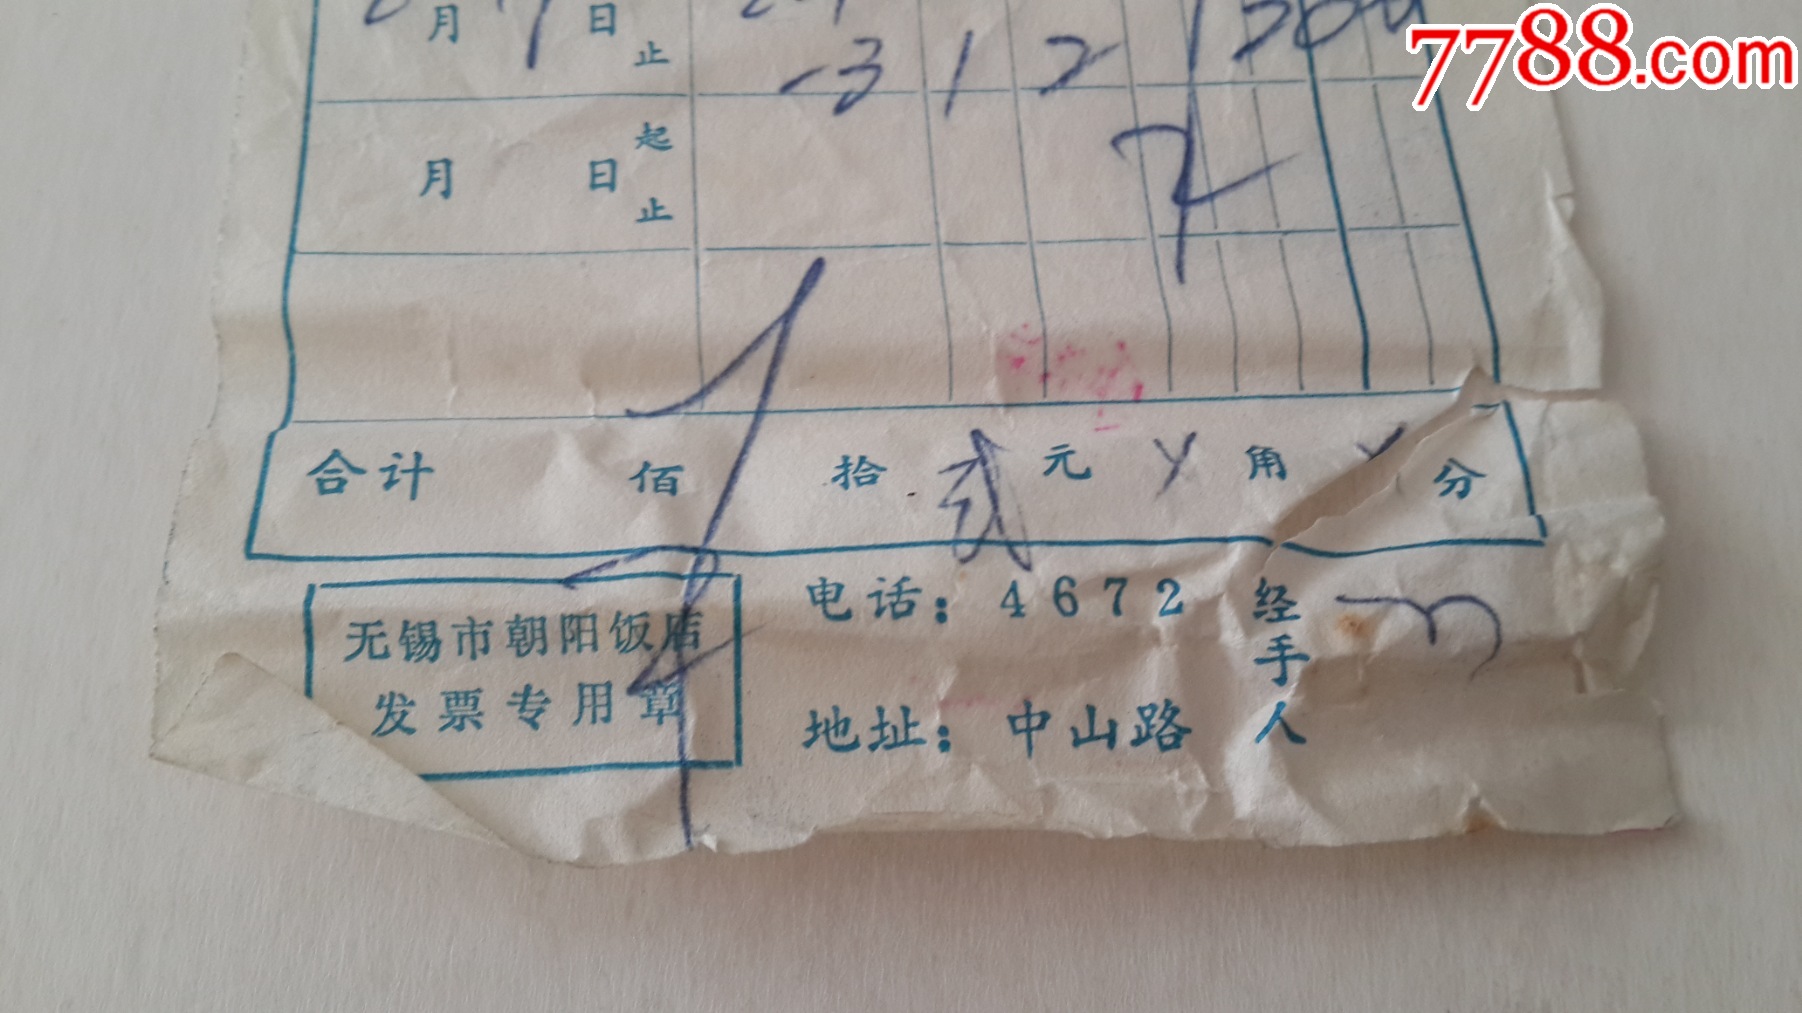 7788.com
月 日 止
-3 1 2
月 日 起
止
2
合计 佰 拾 贰 元 角 分
无锡市朝阳饭店
发票专用章
电话：4672
地址：中山路
经手人